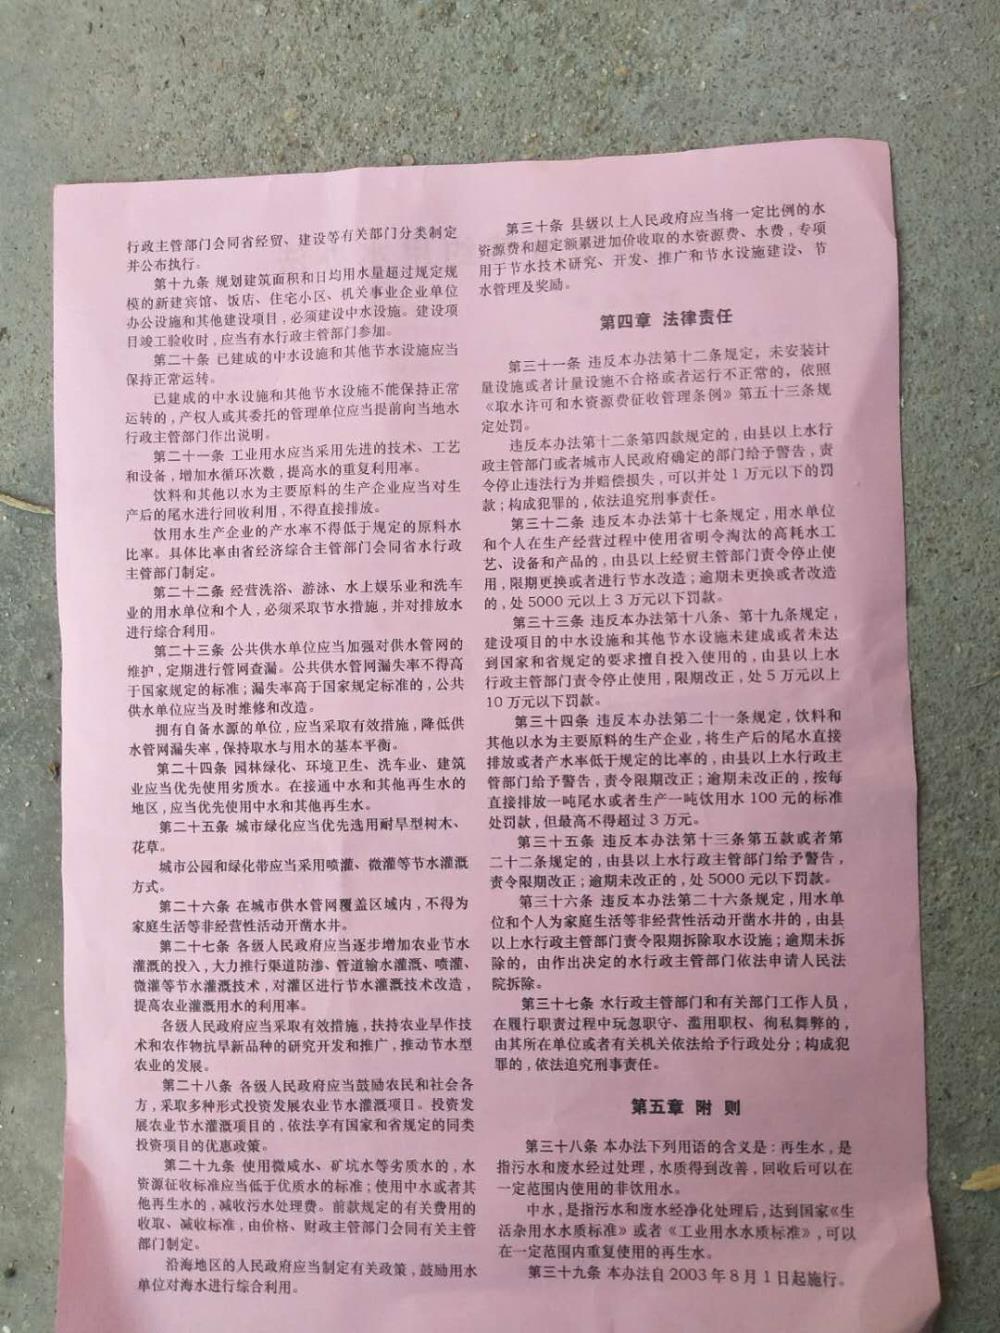 行政主管部门会同省经贸、建设等有关部门分类制定
并公布执行。
第十九条 规划建筑面积和日均用水量超过规定规
模的新建宾馆、饭店、住宅小区、机关事业企业单位
办公设施和其他建设项目,必须建设中水设施。建设项
目竣工验收时,应当有水行政主管部门参加。
第二十条 已建成的中水设施和其他节水设施应当
保持正常运转。
已建成的中水设施和其他节水设施不能保持正常
运转的,产权人或其委托的管理单位应当提前向当地水
行政主管部门作出说明。
第二十一条 工业用水应当采用先进的技术、工艺
和设备,增加水循环次数,提高水的重复利用率。
饮料和其他以水为主要原料的生产企业应当对生
产后的尾水进行回收利用,不得直接排放。
饮用水生产企业的产水率不得低于规定的原料水
比率。具体比率由省经济综合主管部门会同省水行政
主管部门制定。
第二十二条 经营洗浴、游泳、水上娱乐业和洗车
业的用水单位和个人,必须采取节水措施,并对排放水
进行综合利用。
第二十三条 公共供水单位应当加强对供水管网的
维护,定期进行管网查漏。公共供水管网漏失率不得高
于国家规定的标准;漏失率高于国家规定标准的,公共
供水单位应当及时维修和改造。
拥有自备水源的单位,应当采取有效措施,降低供
水管网漏失率,保持取水与用水的基本平衡。
第二十四条 园林绿化、环境卫生、洗车业、建筑
业应当优先使用劣质水。在接通中水和其他再生水的
地区,应当优先使用中水和其他再生水。
第二十五条 城市绿化应当优先选用耐旱型树木、
花草。
城市公园和绿化带应当采用喷灌、微灌等节水灌溉
方式。
第二十六条 在城市供水管网覆盖区域内,不得为
家庭生活等非经营性活动开凿水井。
第二十七条 各级人民政府应当逐步增加农业节水
灌溉的投入,大力推行渠道防渗、管道输水灌溉、喷灌、
微灌等节水灌溉技术,对灌区进行节水灌溉技术改造,
提高农业灌溉用水的利用率。
各级人民政府应当采取有效措施,扶持农业旱作技
术和农作物抗旱新品种的研究开发和推广,推动节水型
农业的发展。
第二十八条 各级人民政府应当鼓励农民和社会各
方,采取多种形式投资发展农业节水灌溉项目。投资发
展农业节水灌溉项目的,依法享有国家和省规定的同类
投资项目的优惠政策。
第二十九条 使用微咸水、矿坑水等劣质水的,水
资源征收标准应当低于优质水的标准;使用中水或者其
他再生水的,减收污水处理费。前款规定的有关费用的
收取、减收标准,由价格、财政主管部门会同有关主管
部门制定。
沿海地区的人民政府应当制定有关政策,鼓励用水
单位对海水进行综合利用。
第三十条 县级以上人民政府应当将一定比例的水
资源费和超定额累进加价收取的水资源费、水费,专项
用于节水技术研究、开发、推广和节水设施建设、节
水管理及奖励。
第四章 法律责任
第三十一条 违反本办法第十二条规定,未安装计
量设施或者计量设施不合格或者运行不正常的,依照
《取水许可和水资源费征收管理条例》第五十三条规
定处罚。
违反本办法第十二条第四款规定的,由县以上水行
政主管部门或者城市人民政府确定的部门给予警告,责
令停止违法行为并赔偿损失,可以并处1万元以下的罚
款;构成犯罪的,依法追究刑事责任。
第三十二条 违反本办法第十七条规定,用水单位
和个人在生产经营过程中使用省明令淘汰的高耗水工
艺、设备和产品的,由县以上经贸主管部门责令停止使
用,限期更换或者进行节水改造;逾期未更换或者改造
的,处5000元以上3万元以下罚款。
第三十三条 违反本办法第十八条、第十九条规定,
建设项目的中水设施和其他节水设施未建成或者未达
到国家和省规定的要求擅自投入使用的,由县以上水
行政主管部门责令停止使用,限期改正,处5万元以上
10万元以下罚款。
第三十四条 违反本办法第二十一条规定,饮料和
其他以水为主要原料的生产企业,将生产后的尾水直接
排放或者产水率低于规定的比率的,由县以上水行政主
管部门给予警告,责令限期改正;逾期未改正的,按每
直接排放一吨尾水或者生产一吨饮用水100元的标准
处罚款,但最高不得超过3万元。
第三十五条 违反本办法第十三条第五款或者第
二十二条规定的,由县以上水行政主管部门给予警告,
责令限期改正;逾期未改正的,处5000元以下罚款。
第三十六条 违反本办法第二十六条规定,用水单
位和个人为家庭生活等非经营性活动开凿水井的,由县
以上水行政主管部门责令限期拆除取水设施;逾期未拆
除的,由作出决定的水行政主管部门依法申请人民法
院拆除。
第三十七条 水行政主管部门和有关部门工作人员,
在履行职责过程中玩忽职守、滥用职权、徇私舞弊的,
由其所在单位或者有关机关依法给予行政处分;构成犯
罪的,依法追究刑事责任。
第五章 附 则
第三十八条 本办法下列用语的含义是:再生水,是
指污水和废水经过处理,水质得到改善,回收后可以在
一定范围内使用的非饮用水。
中水,是指污水和废水经净化处理后,达到国家《生
活杂用水水质标准》或者《工业用水水质标准》,可以
在一定范围内重复使用的再生水。
第三十九条 本办法自2003年8月1日起施行。